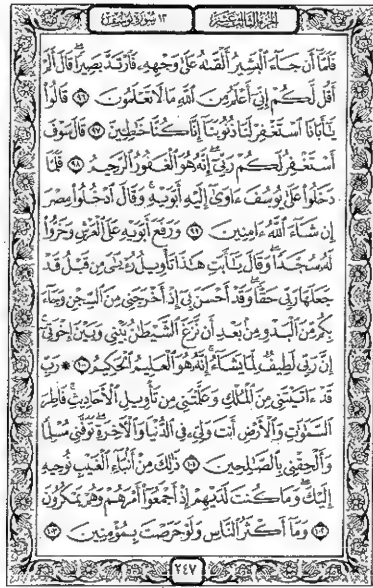 الجزء الثالث عشر
١٢ سورة يوسف
فَلَمَّآ أَن جَآءَ ٱلْبَشِيرُ أَلْقَىٰهُ عَلَىٰ وَجْهِهِۦ فَٱرْتَدَّ بَصِيرًا ۖ قَالَ أَلَمْ
أَقُل لَّكُمْ إِنِّىٓ أَعْلَمُ مِنَ ٱللَّهِ مَا لَا تَعْلَمُونَ ٩٦ قَالُوا۟
يَٰٓأَبَانَا ٱسْتَغْفِرْ لَنَا ذُنُوبَنَآ إِنَّا كُنَّا خَٰطِـِٔينَ ٩٧ قَالَ سَوْفَ
أَسْتَغْفِرُ لَكُمْ رَبِّىٓ ۖ إِنَّهُۥ هُوَ ٱلْغَفُورُ ٱلرَّحِيمُ ٩٨ فَلَمَّا
دَخَلُوا۟ عَلَىٰ يُوسُفَ ءَاوَىٰٓ إِلَيْهِ أَبَوَيْهِ وَقَالَ ٱدْخُلُوا۟ مِصْرَ
إِن شَآءَ ٱللَّهُ ءَامِنِينَ ٩٩ وَرَفَعَ أَبَوَيْهِ عَلَى ٱلْعَرْشِ وَخَرُّوا۟
لَهُۥ سُجَّدًا ۖ وَقَالَ يَٰٓأَبَتِ هَٰذَا تَأْوِيلُ رُءْيَٰىَ مِن قَبْلُ قَدْ
جَعَلَهَا رَبِّى حَقًّا ۖ وَقَدْ أَحْسَنَ بِىٓ إِذْ أَخْرَجَنِى مِنَ ٱلسِّجْنِ وَجَآءَ
بِكُم مِّنَ ٱلْبَدْوِ مِنۢ بَعْدِ أَن نَّزَغَ ٱلشَّيْطَٰنُ بَيْنِى وَبَيْنَ إِخْوَتِىٓ ۚ
إِنَّ رَبِّى لَطِيفٌ لِّمَا يَشَآءُ ۚ إِنَّهُۥ هُوَ ٱلْعَلِيمُ ٱلْحَكِيمُ ١٠٠ ۞ رَبِّ
قَدْ ءَاتَيْتَنِى مِنَ ٱلْمُلْكِ وَعَلَّمْتَنِى مِن تَأْوِيلِ ٱلْأَحَادِيثِ ۚ فَاطِرَ
ٱلسَّمَٰوَٰتِ وَٱلْأَرْضِ أَنتَ وَلِىِّۦ فِى ٱلدُّنْيَا وَٱلْأَخِرَةِ ۖ تَوَفَّنِى مُسْلِمًا
وَأَلْحِقْنِى بِٱلصَّٰلِحِينَ ١٠١ ذَٰلِكَ مِنْ أَنۢبَآءِ ٱلْغَيْبِ نُوحِيهِ
إِلَيْكَ ۖ وَمَا كُنتَ لَدَيْهِمْ إِذْ أَجْمَعُوٓا۟ أَمْرَهُمْ وَهُمْ يَمْكُرُونَ
١٠٢ وَمَآ أَكْثَرُ ٱلنَّاسِ وَلَوْ حَرَصْتَ بِمُؤْمِنِينَ ١٠٣
٢٤٧